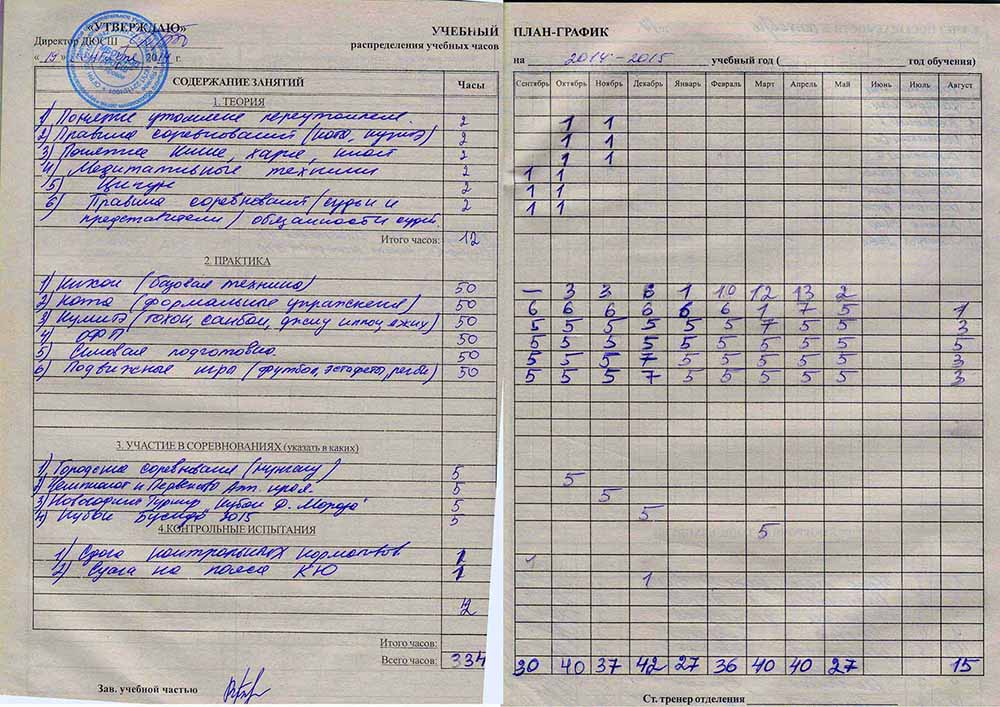 «УТВЕРЖДАЮ» УЧЕБНЫЙ ПЛАН-ГРАФИК
Директор ДЮСШ распределения учебных часов
« 2014 г. на 2014-2015 учебный год ( год обучения)
СОДЕРЖАНИЕ ЗАНЯТИЙ Часы Сентябрь Октябрь Ноябрь Декабрь Январь Февраль Март Апрель Май Июнь Июль Август
1. ТЕОРИЯ
1) Понятие утомление переутомление. 2 1 1
2) Правила соревнований (ката, кумитэ) 2 1 1
3) Понятие Кимэ, хара, 2 1 1
4) Медитативные техники 2 1 1
5) Цигун 2 1 1
6) Правила соревнований (судьи и 2 1 1
представители) обязанности судей.
Итого часов: 12
2. ПРАКТИКА
1) Кихон (базовая техника) 50 — 3 3 6 1 10 12 13 2
2) Ката (формальные упражнения) 50 6 6 6 6 6 6 1 7 5 1
3) Кумитэ (гохон, санбон, джиу иппон, 50 5 5 5 5 5 5 7 5 5 3
4) ОФП 50 5 5 5 5 5 5 5 5 5 5
5) Силовая подготовка. 50 5 5 5 7 5 5 5 5 5 3
6) Подвижные игры (футбол, эстафеты, регби) 50 5 5 5 7 5 5 5 5 5 3
3. УЧАСТИЕ В СОРЕВНОВАНИЯХ (указать в каких)
1) Городские соревнования 5 5
2) Чемпионат и Первенство Алт. края. 5 5
3) Новогодний Турнир Кубок Д. Мороза 5 5
4) Кубок Бусидо 2015 5 5
4.КОНТРОЛЬНЫЕ ИСПЫТАНИЯ
1) Сдача контрольных нормативов 1 1
2) Сдача на пояса КЮ 1 1
2
Итого часов:
Всего часов: 334 30 40 37 42 27 36 40 40 27 15
Зав. учебной частью Ст. тренер отделения